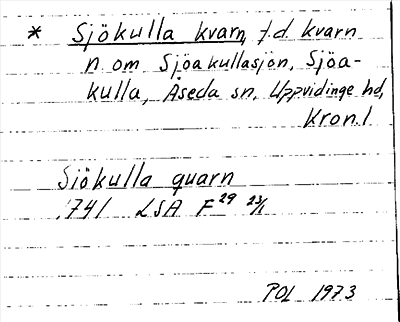 * Sjökulla kvarn, f.d. kvarn
n om Sjöakullasjön, Sjöa-
kulla, Åseda sn, Uppvidinge hd,
Kron. l
Siökulla quarn
1741 LSA F29 23/1
POL 1973